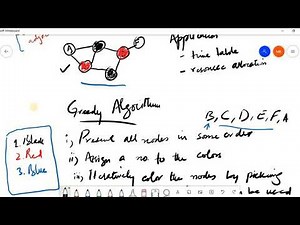 Application
- time table
- resource allocation
A
E
Greedy Algorithm
B, C, D, E, F, A
1. Black
2. Red
3. Blue
i) Present all nodes in some order
ii) Assign a no. to the colors
iii) Iteratively color the nodes by picking
be used